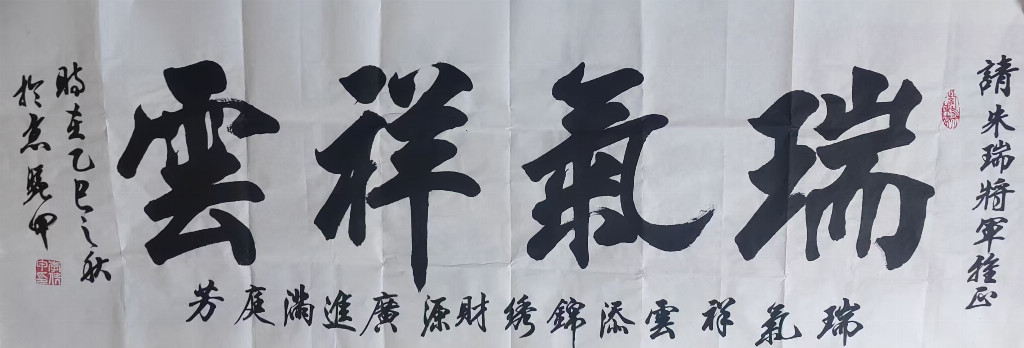 請朱瑞將軍雅正
瑞氣祥雲
瑞氣祥雲添錦绣財源廣進滿庭芳
時在乙巳之秋
於京
甲